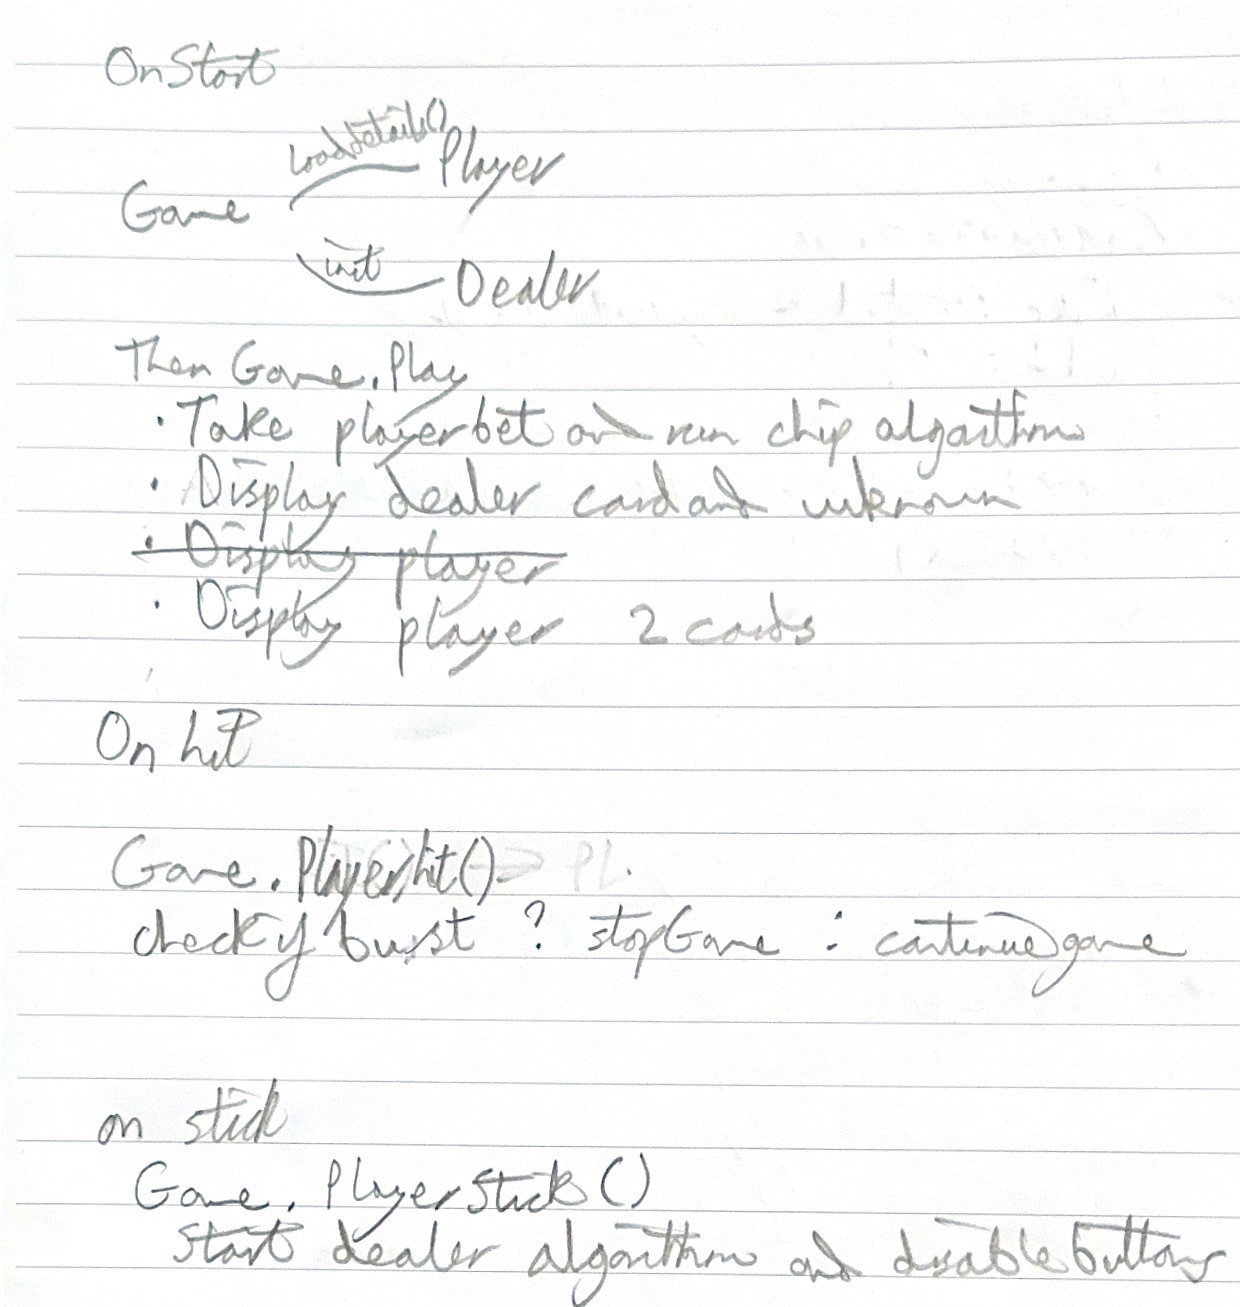 OnStart
Loaddetails()
Player
Game
init
Dealer
Then Game.Play
· Take player bet and run chip algorithm
· Display dealer card and unknown
· Display player
· Display player 2 cards
On hit
Game.Playerhit()
check if bust ? stopGame : continue game
on stick
Game.PlayerStick()
Start dealer algorithm and disable buttons